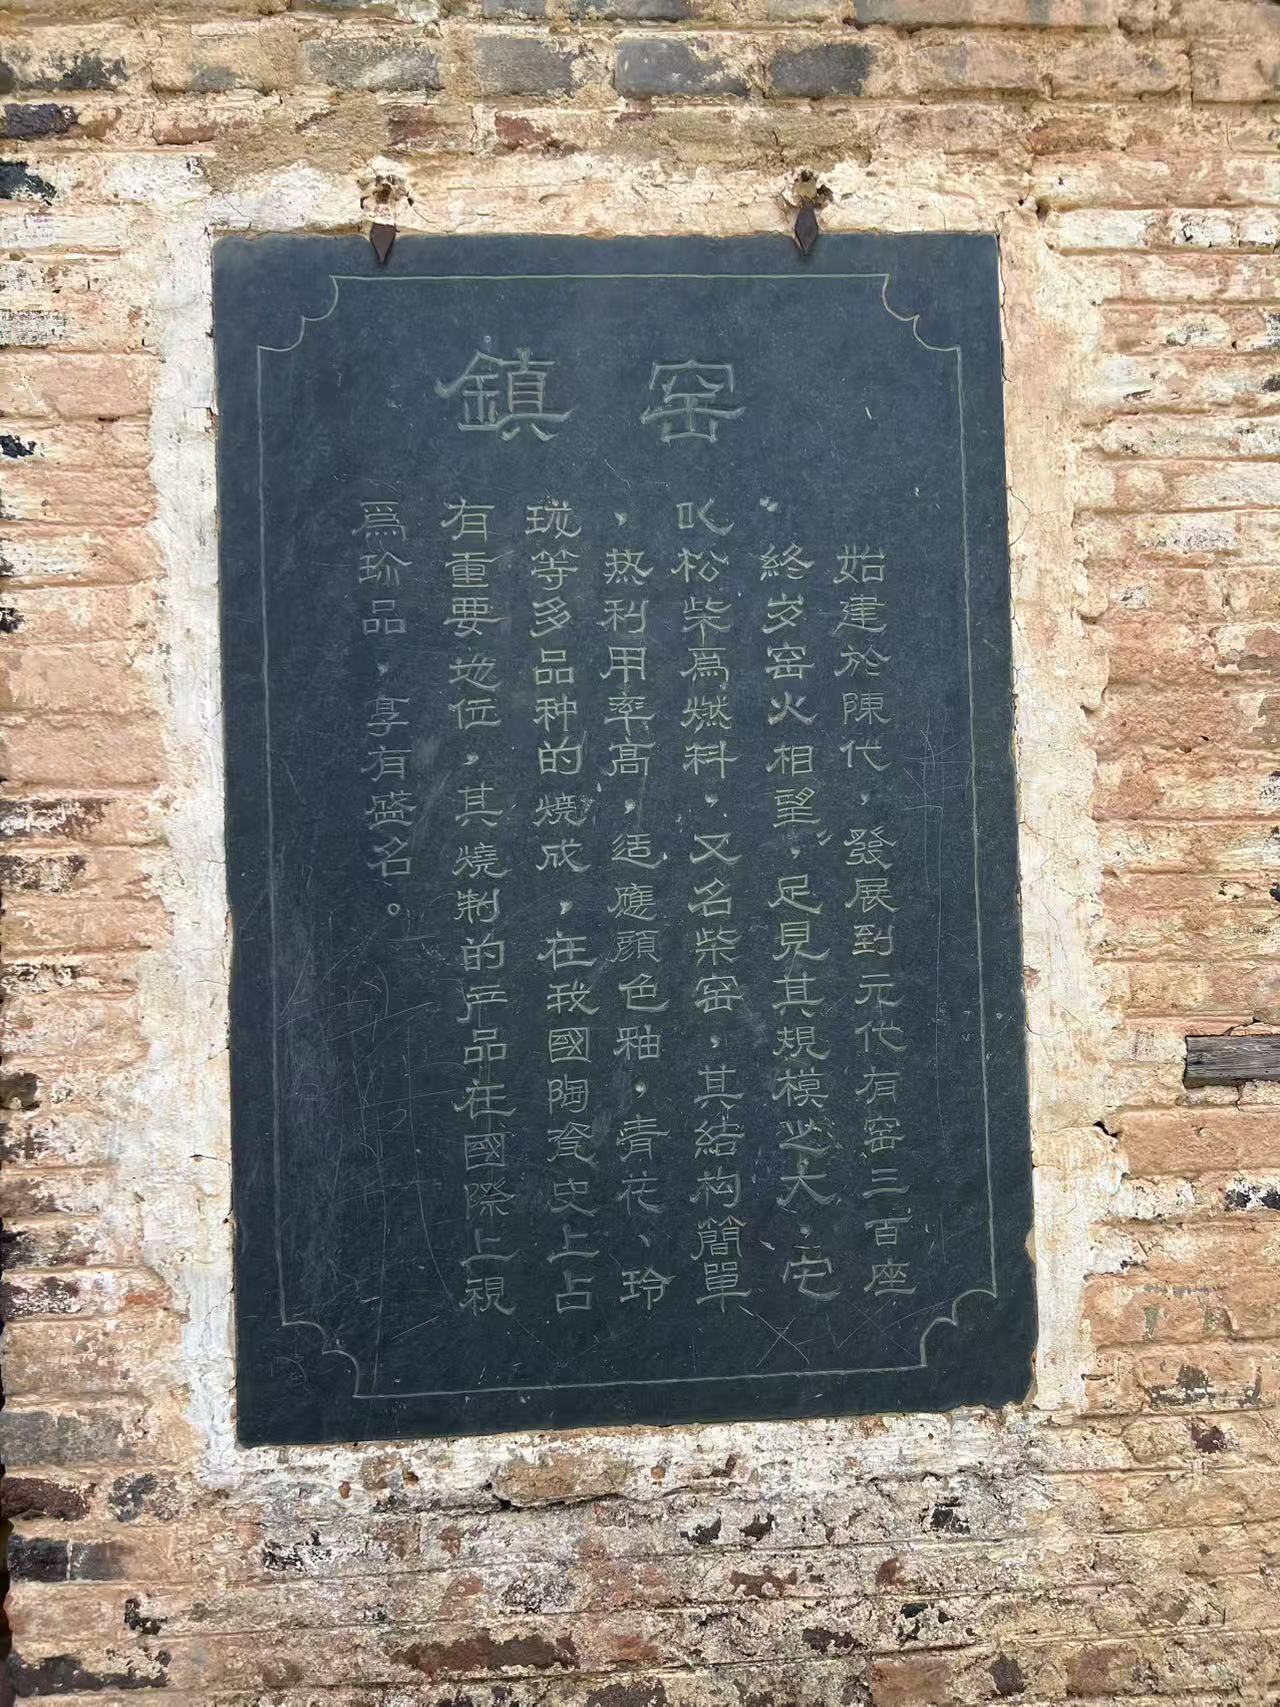 鎮窑
始建於陳代，發展到元代有窑三百座
，終岁窑火相望，足見其規模之大，它
以松柴爲燃料，又名柴窑，其結构簡單
，热利用率髙，适應顔色釉，青花、玲
珑等多品种的燒成，在我國陶瓷史上占
有重要地位，其燒制的产品在國際上視
爲珍品，享有盛名。